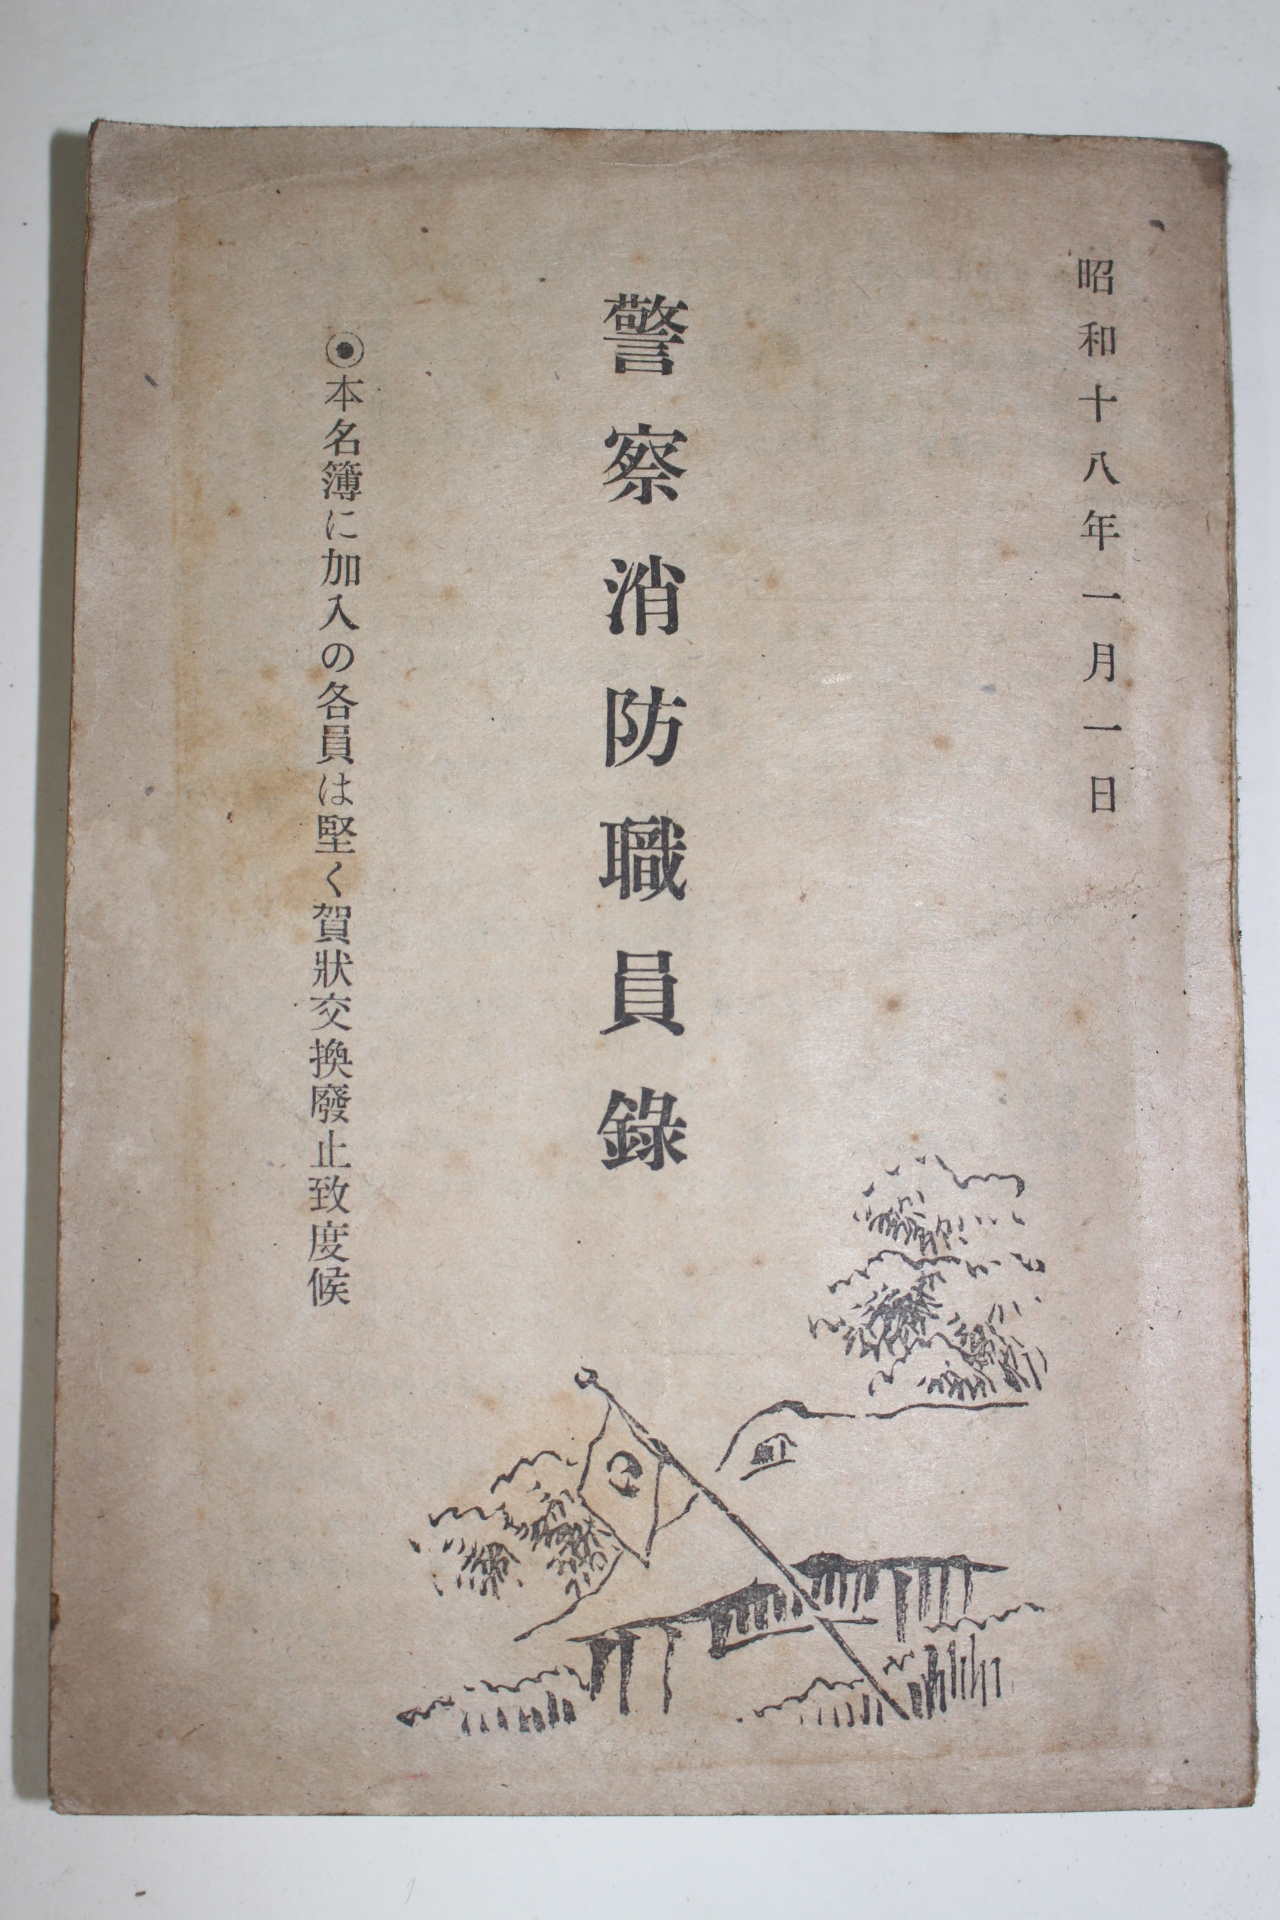 昭和十八年一月一日
警察消防職員錄
◉本名簿に加入の各員は堅く賀狀交換廢止致度候